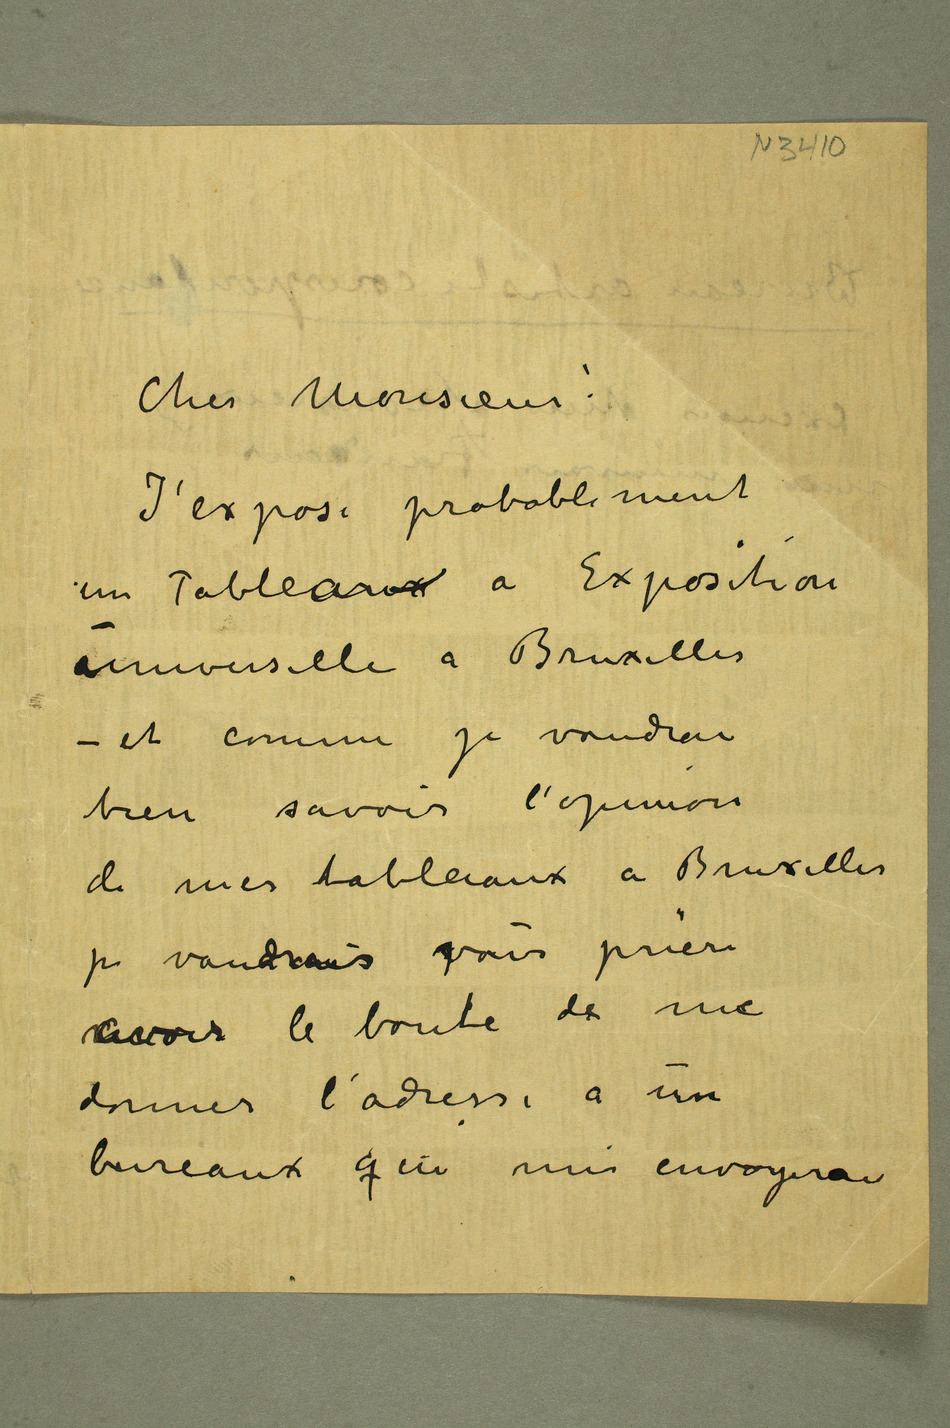 N 3410
Cher Monsieur!
J'expose probablement
un Tableaux a Exposition
universelle a Bruxelles
– et comme je voudrai
bien savoir l'opinion
de mes tableaux a Bruxelles
je voudrais vous prière
avoir le bonte de me
donner l'adresse a un
bureaux qui me envoyerai